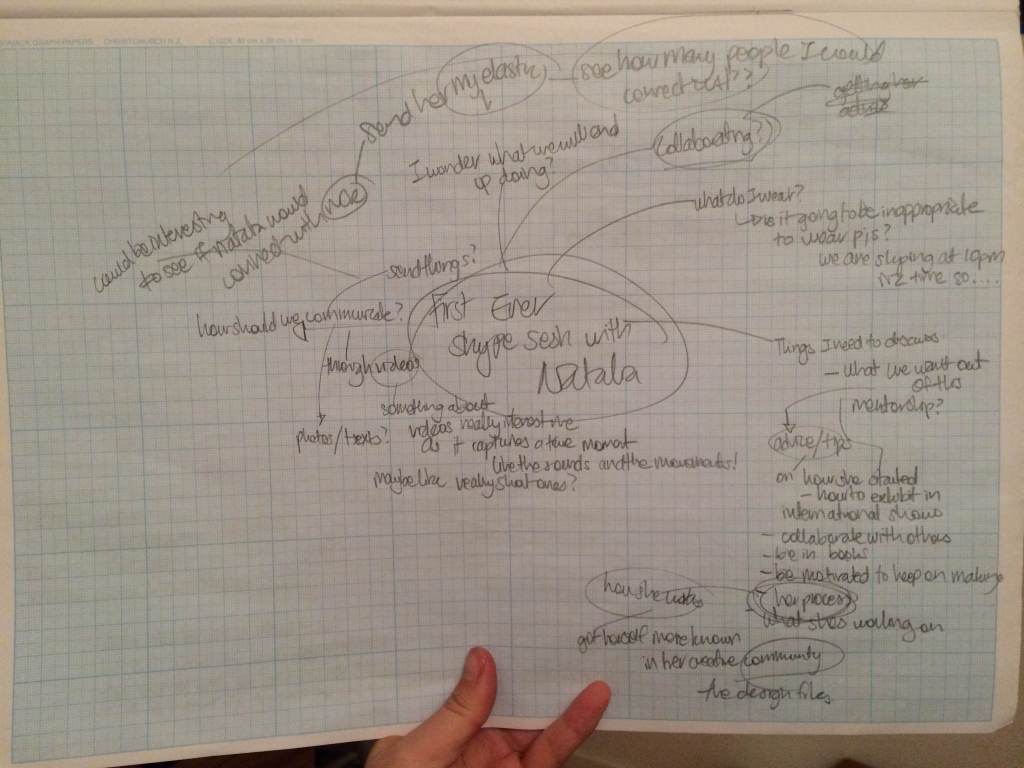 GRAPH PAPERS CHRISTCHURCH N.Z.
send her my elastic
see how many people I could
connect it at??
getting her
collaborating?
I wonder what we will end
up doing?
what do I wear?
is it going to be inappropriate
to wear pjs?
we are skyping at 10pm
NZ time so....
could be interesting
to see if natala would
connect with
send things?
how should we communicate?
through videos
photos/texts?
First Ever
skype sesh with
Natala
something about
videos really interest me
as it captures a time moment
like the sounds and the movements!
maybe like really short ones?
Things I need to discuss
- what we want out
of this
mentorship?
advice/tips
on how she started
- how to exhibit in
international shows
- collaborate with others
- be in books
- be motivated to keep on making
her process
- what shes working on
how she works
got herself more known
in her creative community
- the design files